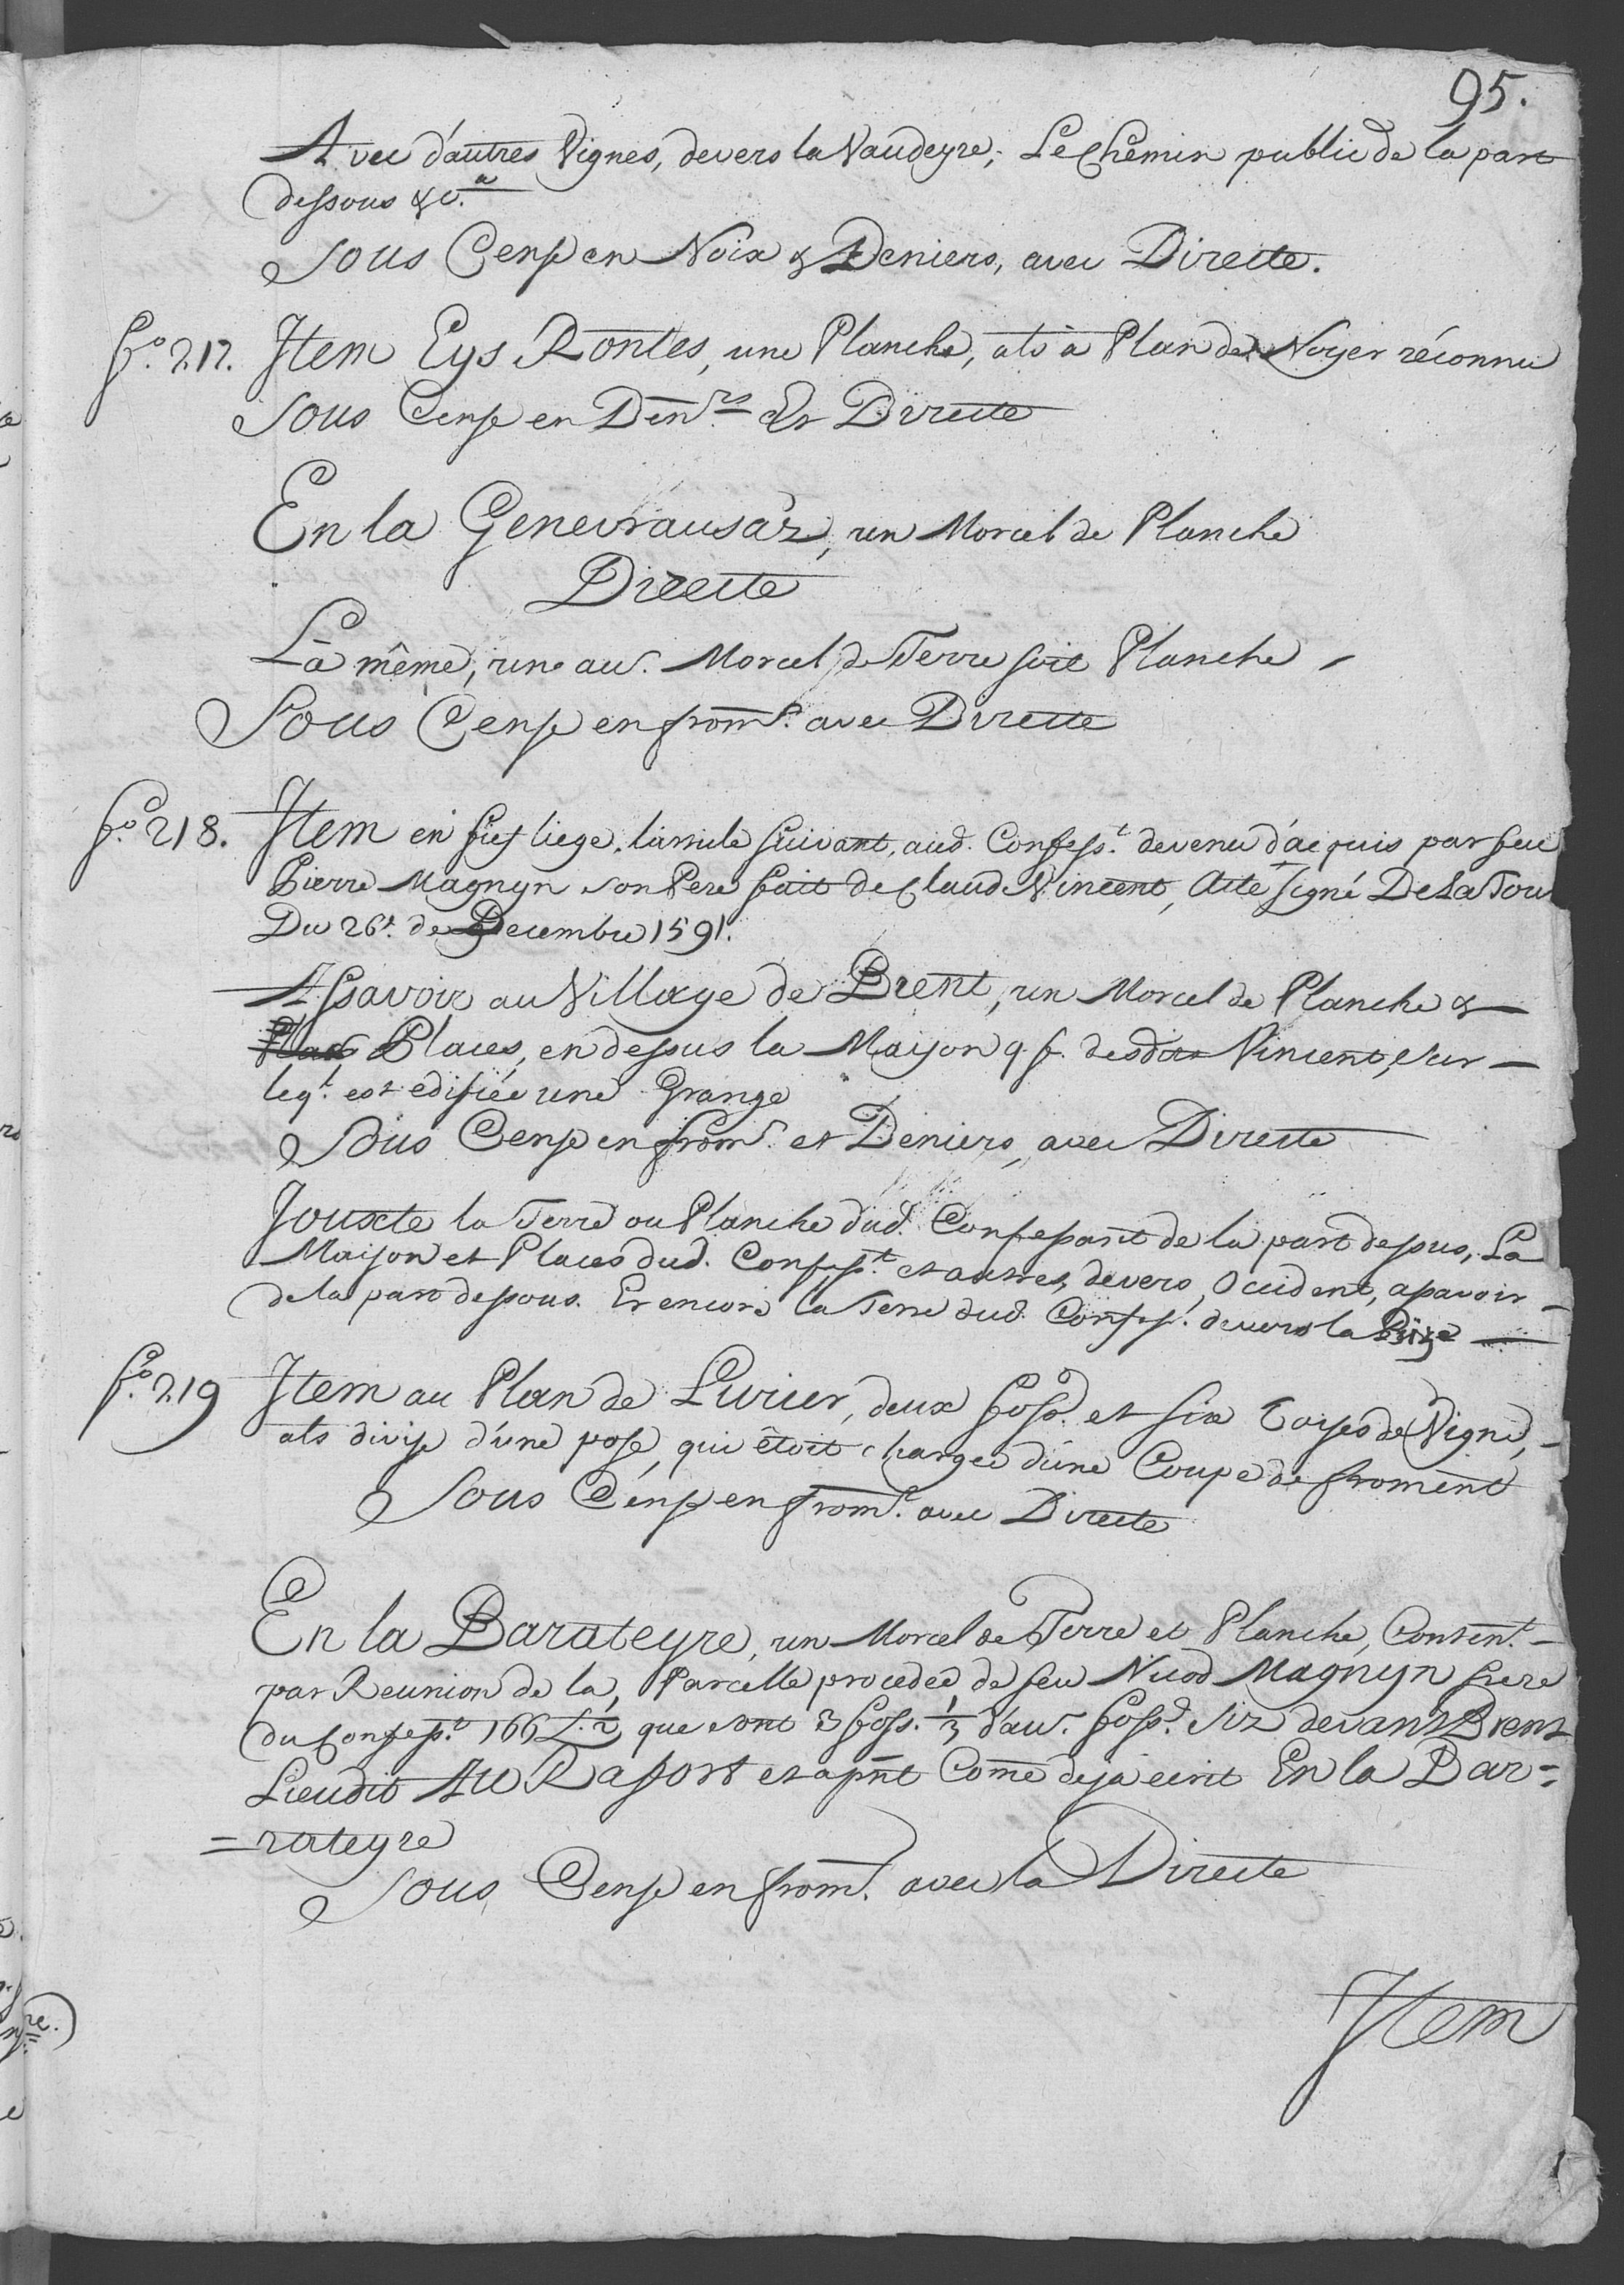 95.
Avec d'autres Vignes, devers la Vaudeyre; Le Chemin public de la part
dessous &c.a
Sous Cense en Noix & Deniers, avec Directe.
fo. 217. Item Eys Rontes, une Planche, als à Plan de Noyer réconnu
Sous Cense en Den.rs Et Directe
En la Genevrausaz, un Morcel de Planche
Directe
Là même, une au.e Morcel de Terre soit Planche
Sous Cense en from.t avec Directe
fo. 218. Item en fief liege, l'article suivant, aud. Confess.t devenu d'acquis par feu
Pierre Magnyn son Pere fait de Claud Vincent, Acte signé De La Tour
Du 26e. de Decembre 1591.
Assavoir au Village de Brent, un Morcel de Planche &
Places, en dessus la Maison q. f. desdits Vincent, sur
leq.l est edifiée une Grange
Sous Cense en from.t et Deniers, avec Directe
Jouxte la Terre ou Planche dud. Confessant de la part dessus, La
Maison et Places dud. Confess.t et autres, devers Occident, assavoir
de la part dessous. Et encore la Terre dud. Confess. devers la Bize
fo. 219 Item au Plan de Livier, deux foss.d et six Toises de Vigne,
als divise d'une pose, qui êtoit chargée d'une Coupe de froment
Sous Cense en from.t avec Directe
En la Barateyre, un Morcel de Terre et Planche, Conten.t
par Reunion de la, Parcelle procedée de feu Nicod Magnyn frere
du Confess.t 166 T. 2 que sont 3 foss. 1/3 d'au.e foss.d Siz devant Brent
Lieudit Au Rafort et apnt Come deja ecrit En la Bar=
=rateyre
Sous Cense en from.t avec la Directe
Item